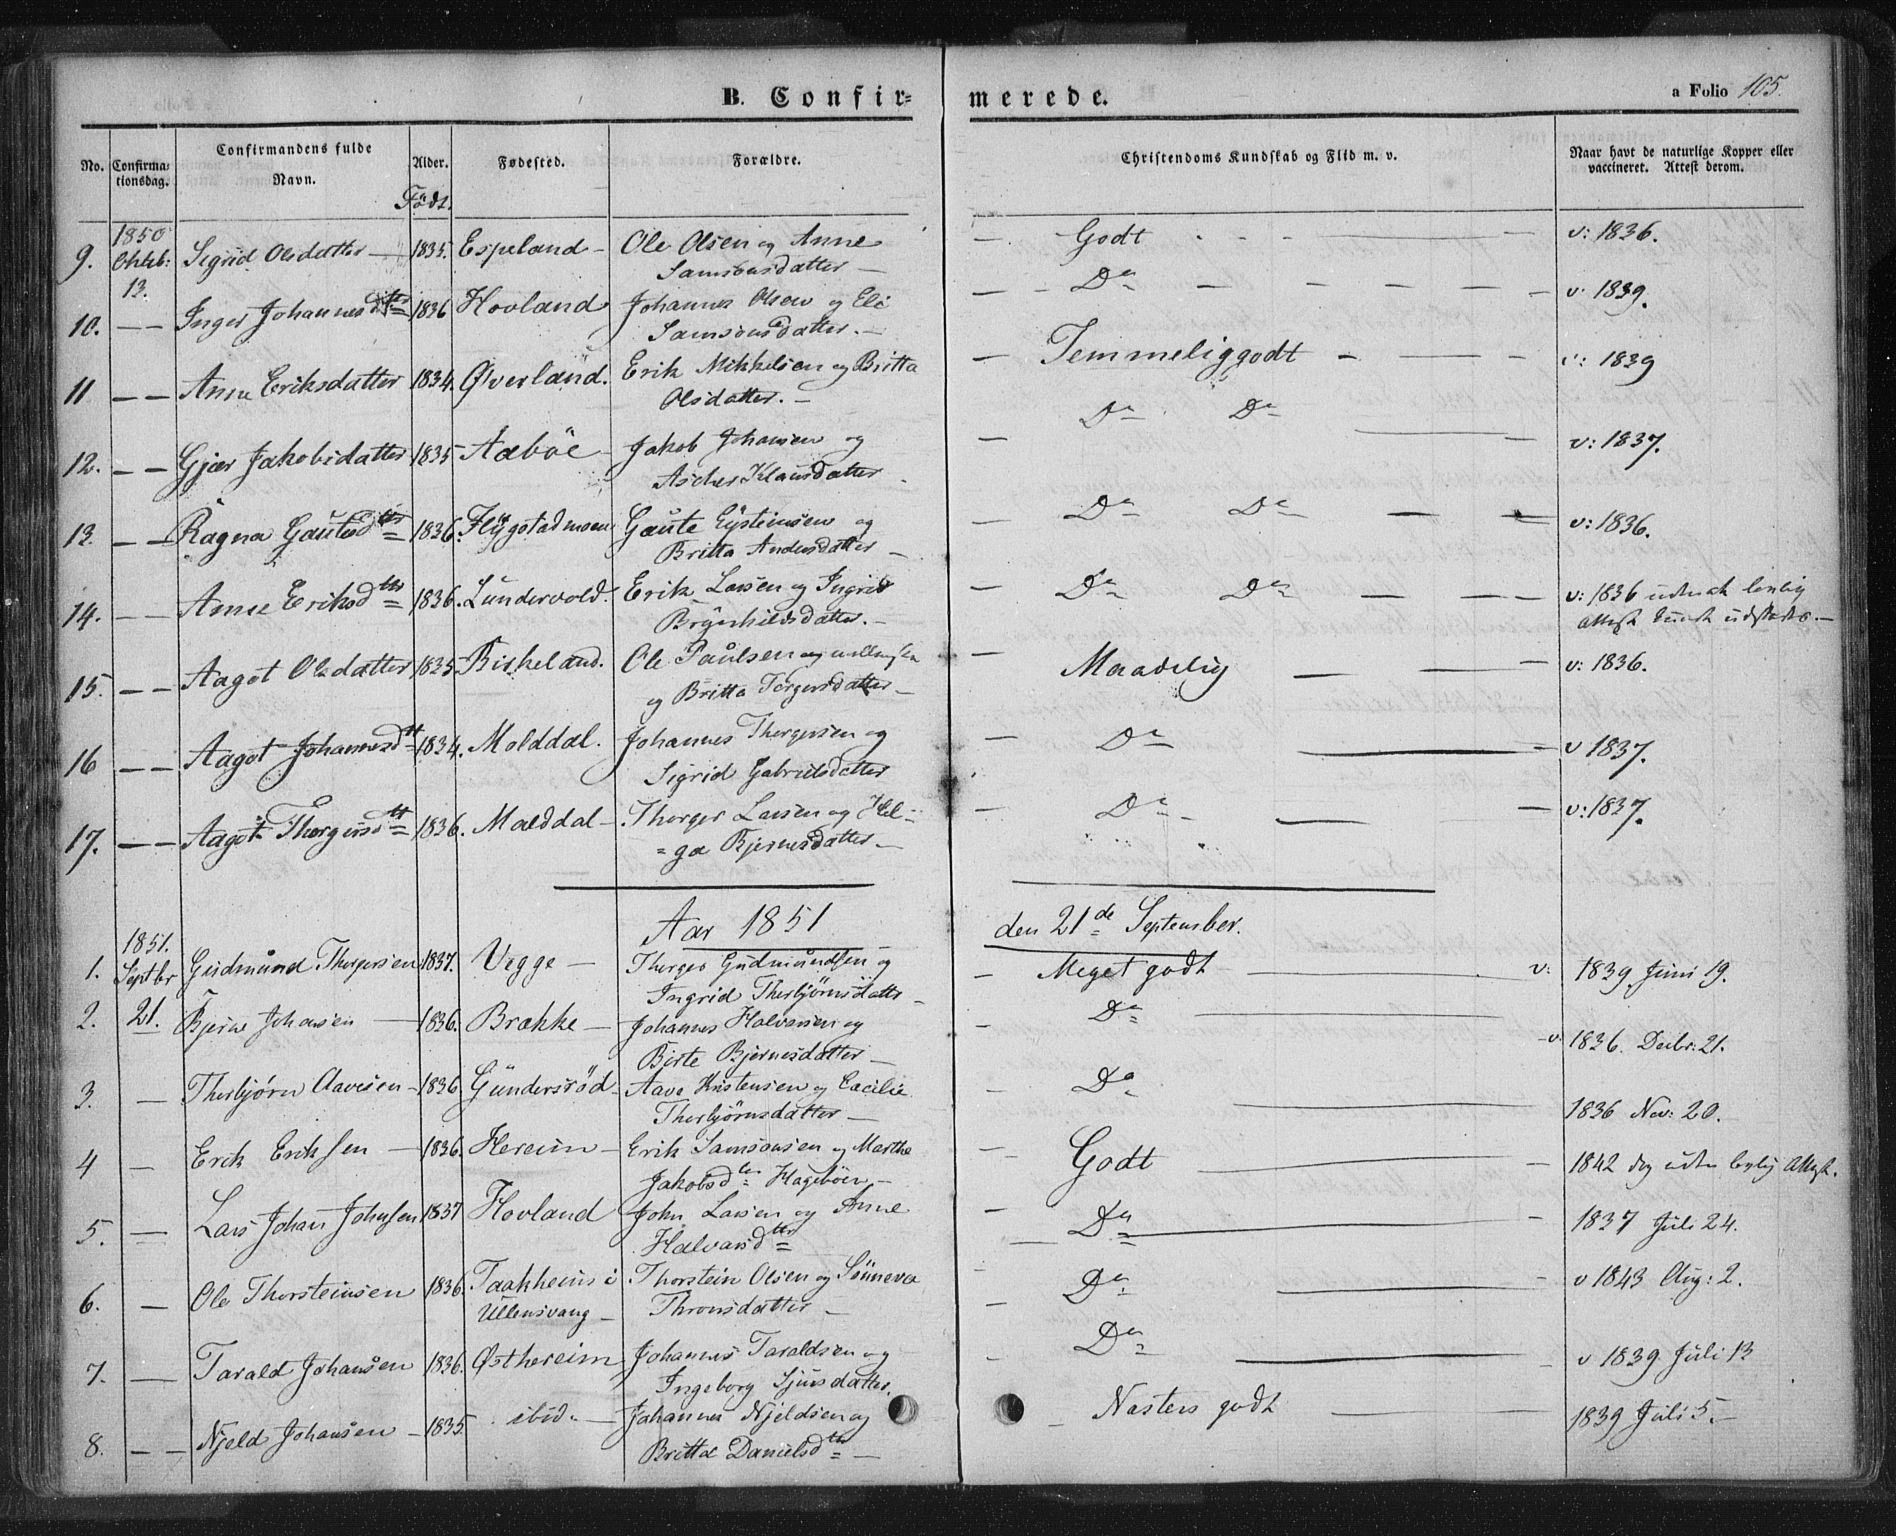 B. Confir= merede. a Folio 105.
No. Confirma=tionsdag. Confirmandens fulde Navn. Alder. Födt. Fødested. Forældre. Christendoms Kundskab og Flid m. v. Naar havt de naturlige Kopper eller vaccineret. Attest derom.
9. 1850 Oktb: 13. Sigrid Olsdatter — 1835. Espeland — Ole Olsen og Anne — Godt — v: 1836.
Samsonsdatter —
10. — — Inger Johannesdtr 1836 Hovland Johannes Olsen og Eli — Do — v. 1839.
Samsonsdatter. —
11 — — Anne Eriksdatter 1834. Øverland. Erik Mikkelsen og Britta — Temmelig godt — v: 1839
Olsdatter. —
12. — — Gjør Jakobsdatter 1835 Aabøe Jakob Johansen og — Do Do — v: 1837.
Klausdatter
13. — — Ragna Gautesdtr 1836. Flygstadmoen Gaute Eysteinsen og — Do Do — v: 1836.
Britta Andersdatter —
14. — — Anne Eriksdtr 1836. Lundervold. Erik Larsen og Ingrid — Do Do — v: 1836 uden at lovlig
Brynhildsdatter. — Attest —
15. — — Aagot Olsdatter 1835 Birkeland. Ole Paulsen — Maadelig — v: 1836.
og Britta Torgersdatter —
16 — — Aagot Johannesdt 1834. Molddal. Johannes Thorgersen og — Do — v 1837.
Sigrid Gabrielsdatter
17. — — Aagot Thorgersdt 1836. Molddal — Thorger Larsen og Hel= — Do — v: 1837.
=ga Bjernesdatter —
Aar 1851 den 21de September.
1. 1851. Septbr Gudmund Thorgersen 1837. Vegge — Thorger Gudmundsen og — Meget godt — v: 1839 Juni 19.
Ingrid Thorbjörnsdatter —
2. 21. Bjerne Johansen — 1836. Brække — Johannes Halvorsen og — Do — v. 1836. Decbr: 21.
Birte Bjernesdatter —
3. — Thorbjørn Aavesen — 1836 Gundersröd — Aave Kristensen og Cæcilie — Do — 1836 Nov: 20.
Thorbjörnsdatter —
4 — Erik Eriksen — 1836. Hereim — Erik Samsonsen og Marthe — Godt — 1842 dog uden lovlig Attest.
Jakobsdtr Hagebøen —
5. — Lars Johan Johnsen 1837 Hovland John Larsen og Anne — Do — 1837 Juli 24.
Halvarsdtr
6. — Ole Thorsteinsen 1836. Taakheim i Thorstein Olsen og Sönneva — Do — v 1843 Aug: 2.
Ullensvang — Thronsdatter —
7. — Tarald Johansen 1836. Østhereim Johannes Taraldsen og — Do — v 1839 Juli 13
Ingeborg Sjursdatter.
8. — — Njeld Johansen — 1835. ibid. — Johannes Njeldsen og — Næsten godt — 1839 Juli 5. —
Britta Danielsdtr —